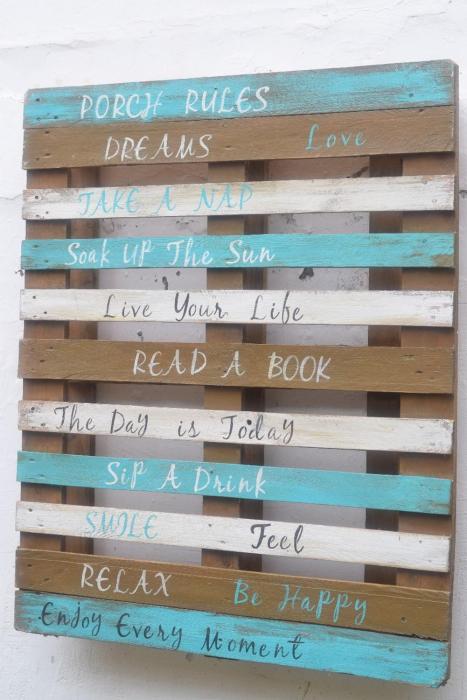 PORCH RULES
DREAMS Love
TAKE A NAP
Soak UP The Sun
Live Your Life
READ A BOOK
The Day is Today
Sip A Drink
SMILE Feel
RELAX Be Happy
Enjoy Every Moment